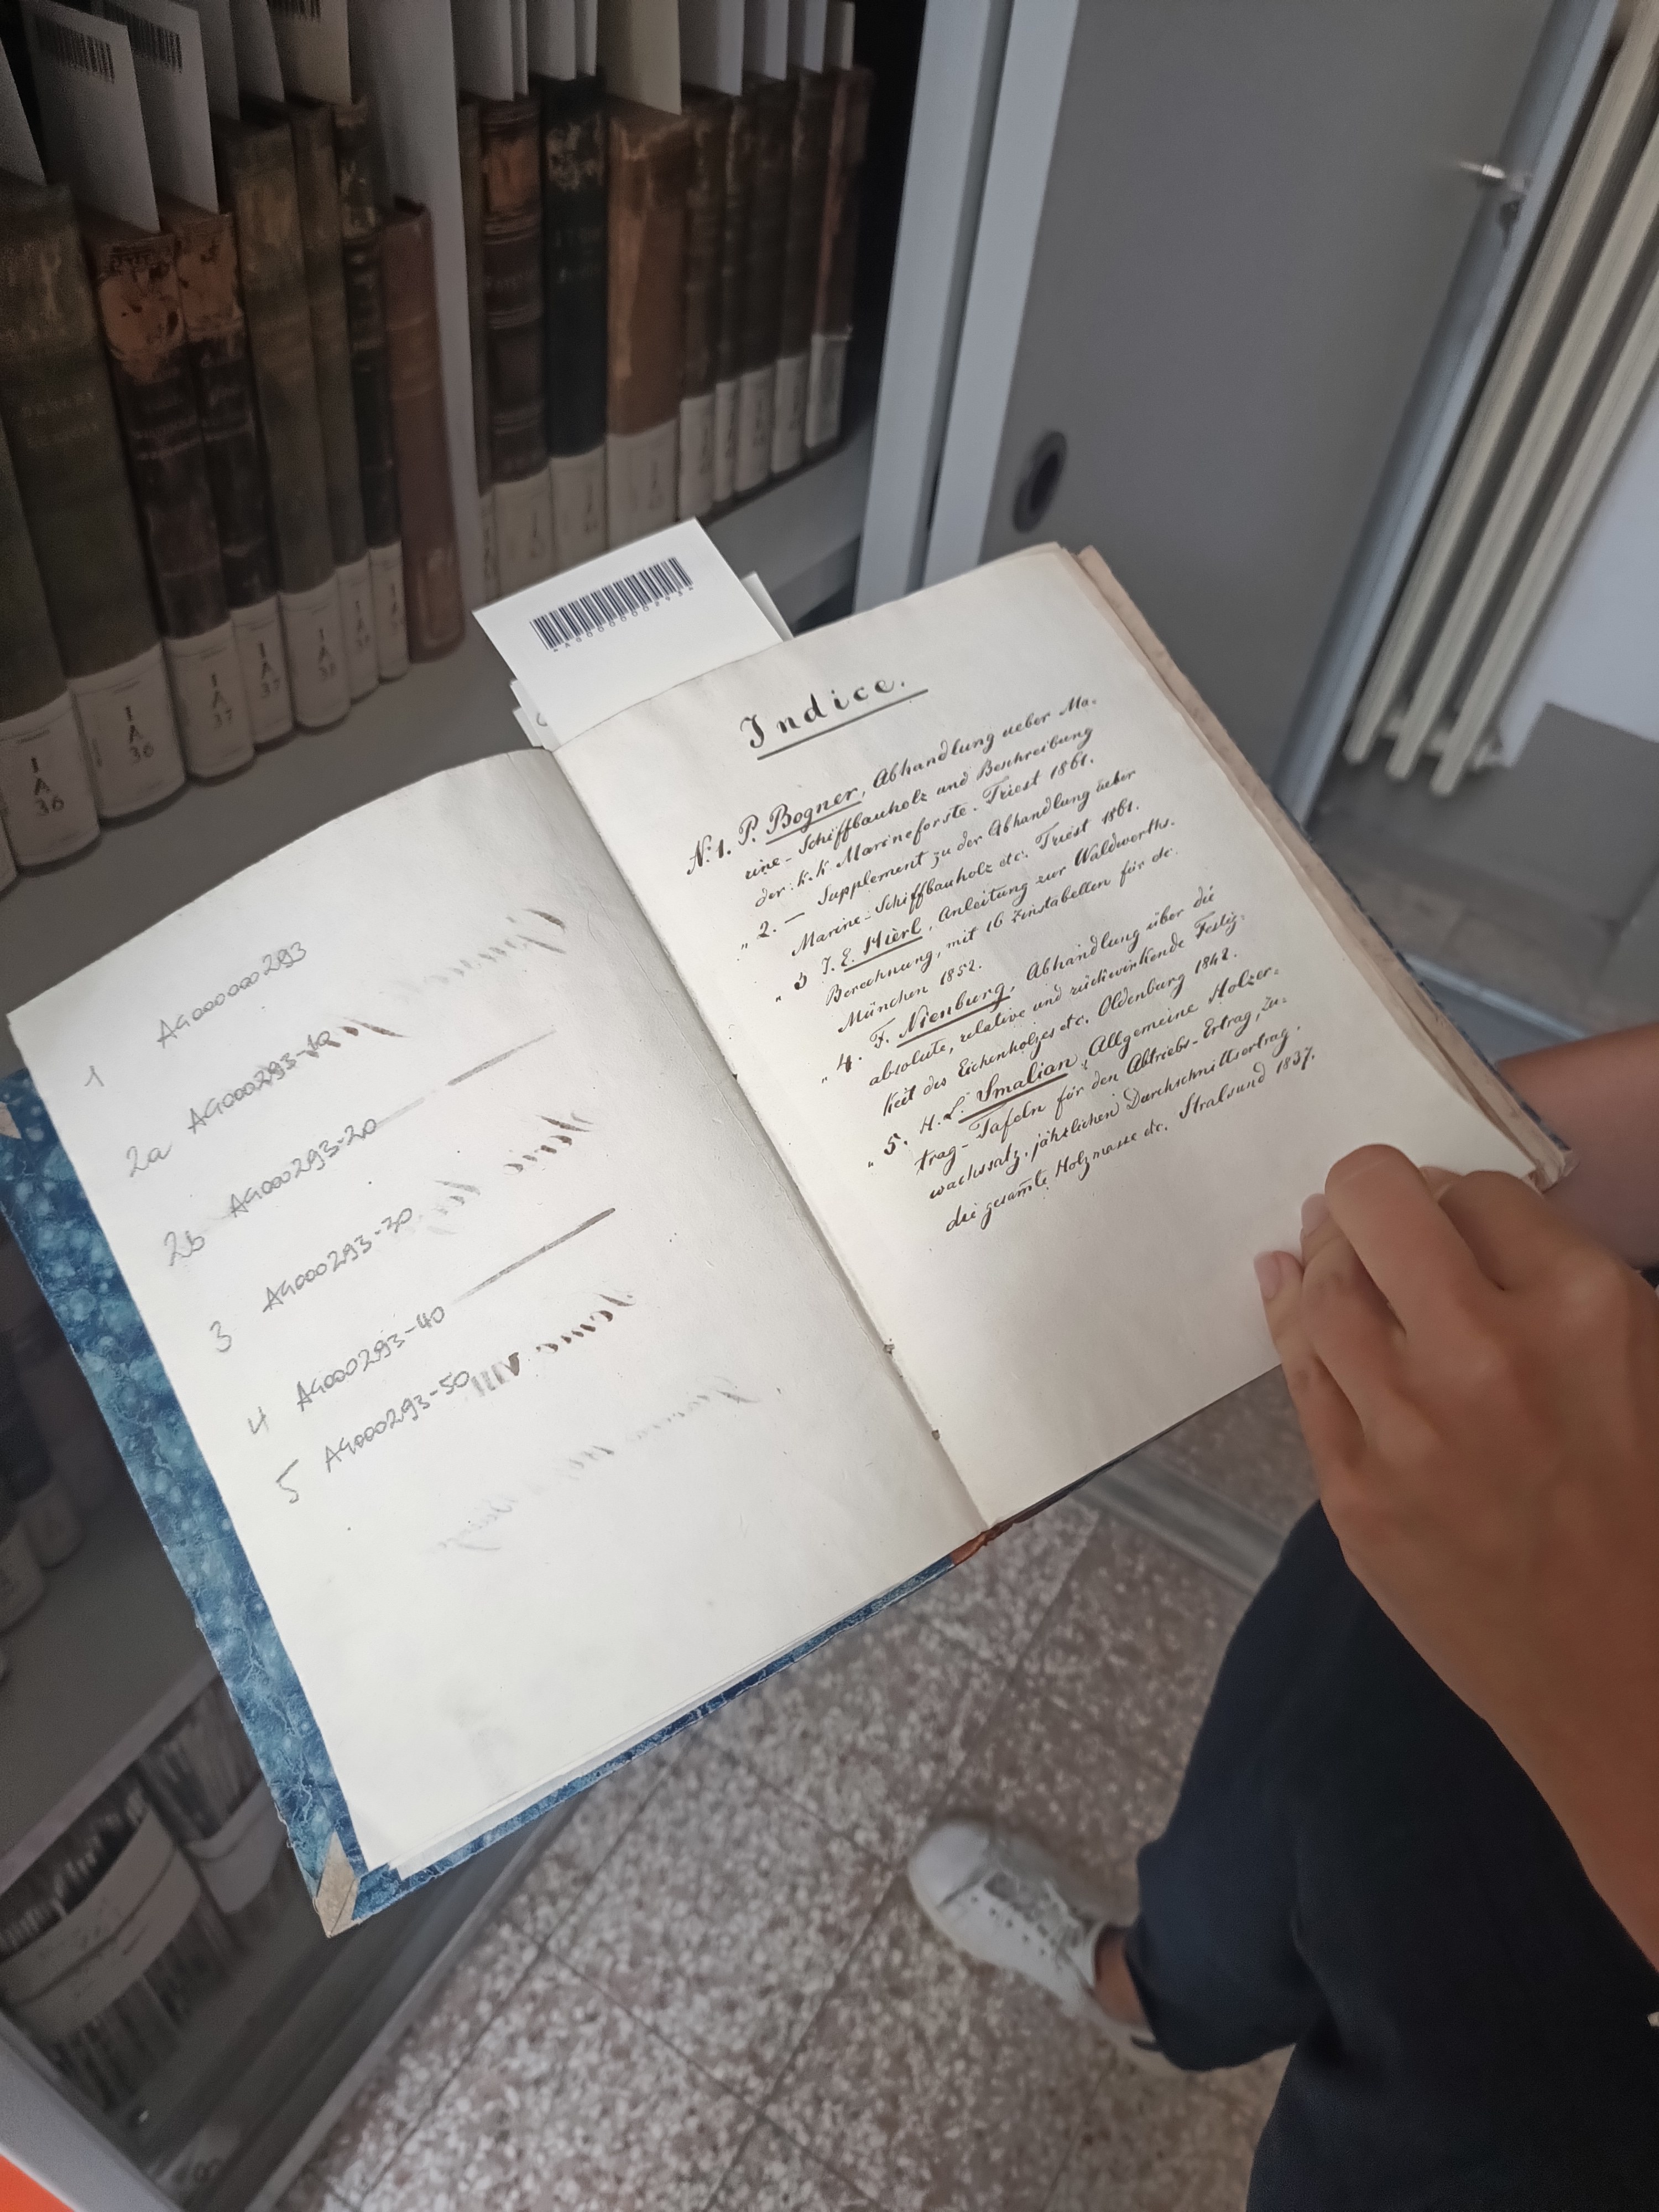 I
A
36
I
A
36
I
A
37
I
A
37
I
A
38
1 A4000000293
2a A4000293-10
2b A4000293-20
3 A4000293-30
4 A4000293-40
5 A4000293-50
Indice.
N:1. P. Bogner, Abhandlung ueber Ma-
rine-Schiffbauholz und Beschreibung
der k.k. Marineforste. Triest 1861.
" 2. — Supplement zu der Abhandlung ueber
Marine-Schiffbauholz etc. Triest 1861.
" 3 J. E. Hierl, Anleitung zur Waldwerths-
Berechnung, mit 16 Zinstabellen für etc.
München 1852.
" 4. F. Nienburg, Abhandlung über die
absolute, relative und rückwirkende Festig-
keit des Eichenholzes etc. Oldenburg 1842.
" 5. H. L. Smalian, Allgemeine Holzer-
trag-Tafeln für den Abtriebs-Ertrag, Zu-
wachssatz, jährlichen Durchschnittsertrag,
die gesam̅te Holzmasse etc. Stralsund 1837.